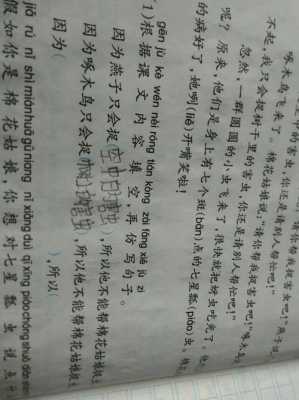 的害虫,你还是请别人帮忙吧!"
啄木鸟飞来了。棉花姑娘说:"请你帮我捉害虫吧!"
不起,我只会捉树干里的害虫,你还是请别人帮忙吧!"
忽然,一群圆圆的小虫飞来了,很快就把蚜虫吃光了。
呢?原来,他们是身上有七个斑(bān)点的七星瓢(piáo)虫。
的病好了,她咧(liě)开嘴笑啦!
gēn jù kè wén nèi róng tián kòng zài fǎng xiě jù zi
(1)根据课文内容填空,再仿写句子。
因为燕子只会捉空中的害虫,所以他不能帮棉花姑娘捉
因为啄木鸟只会捉树干里的害虫,所以他不能帮棉花姑娘捉
因为( ),所以(
jiǎ rú nǐ shì miánhuā gū niang nǐ xiǎng duì qī xīng piáo chóng shuō diǎn
假如你是棉花姑娘,你想对七星瓢虫说点